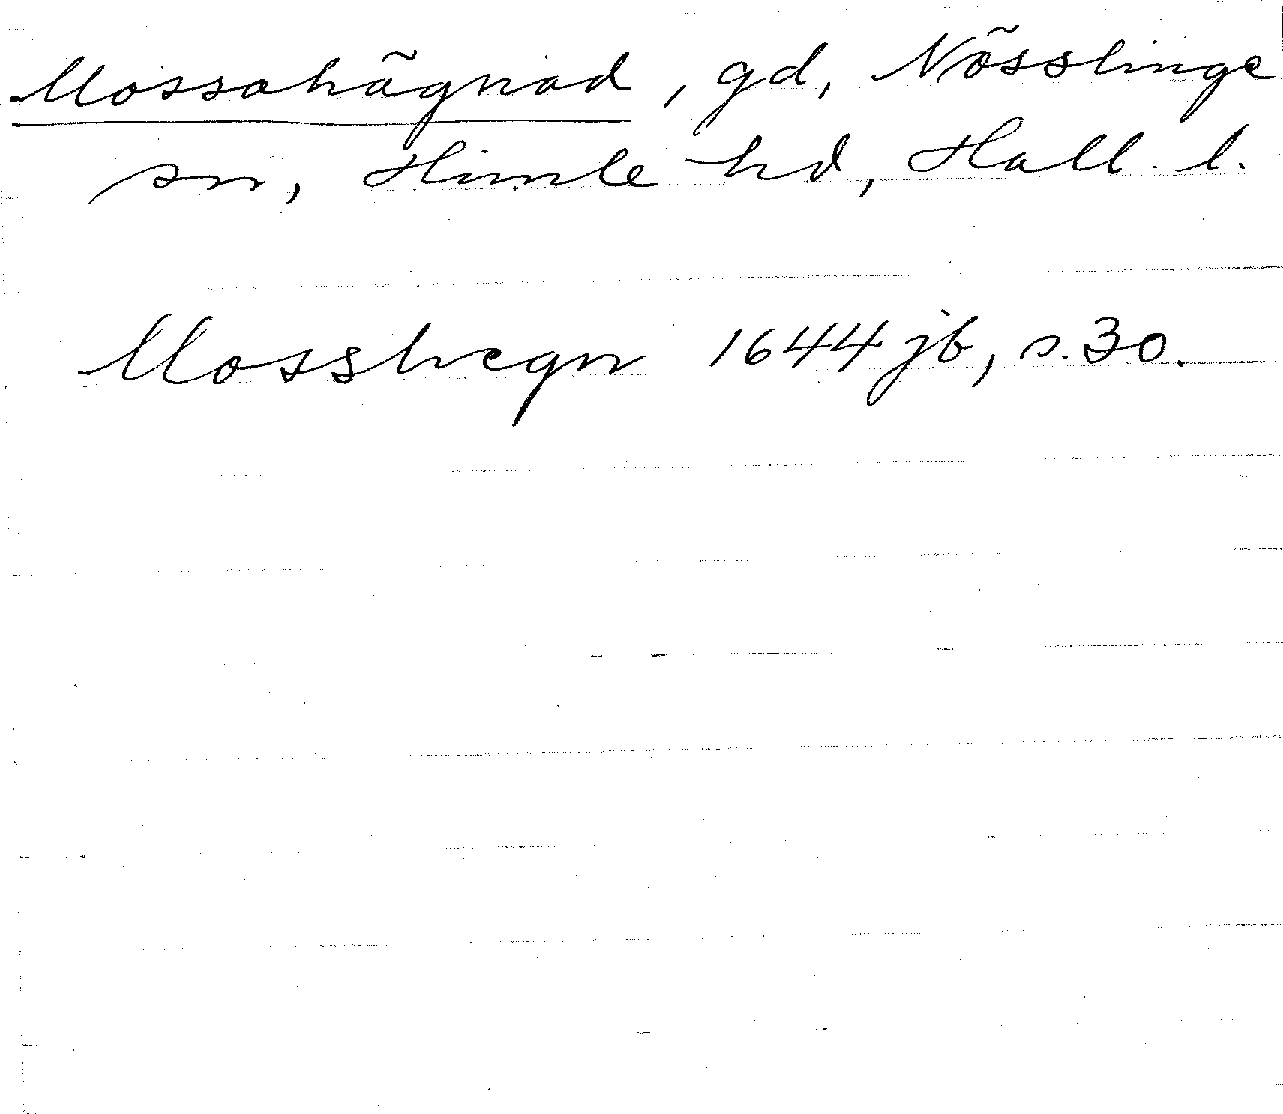 Mossahägnad, gd, Nösslinge
sn, Himle hd, Hall. l.
Mosshegn 1644 jb, s. 30.